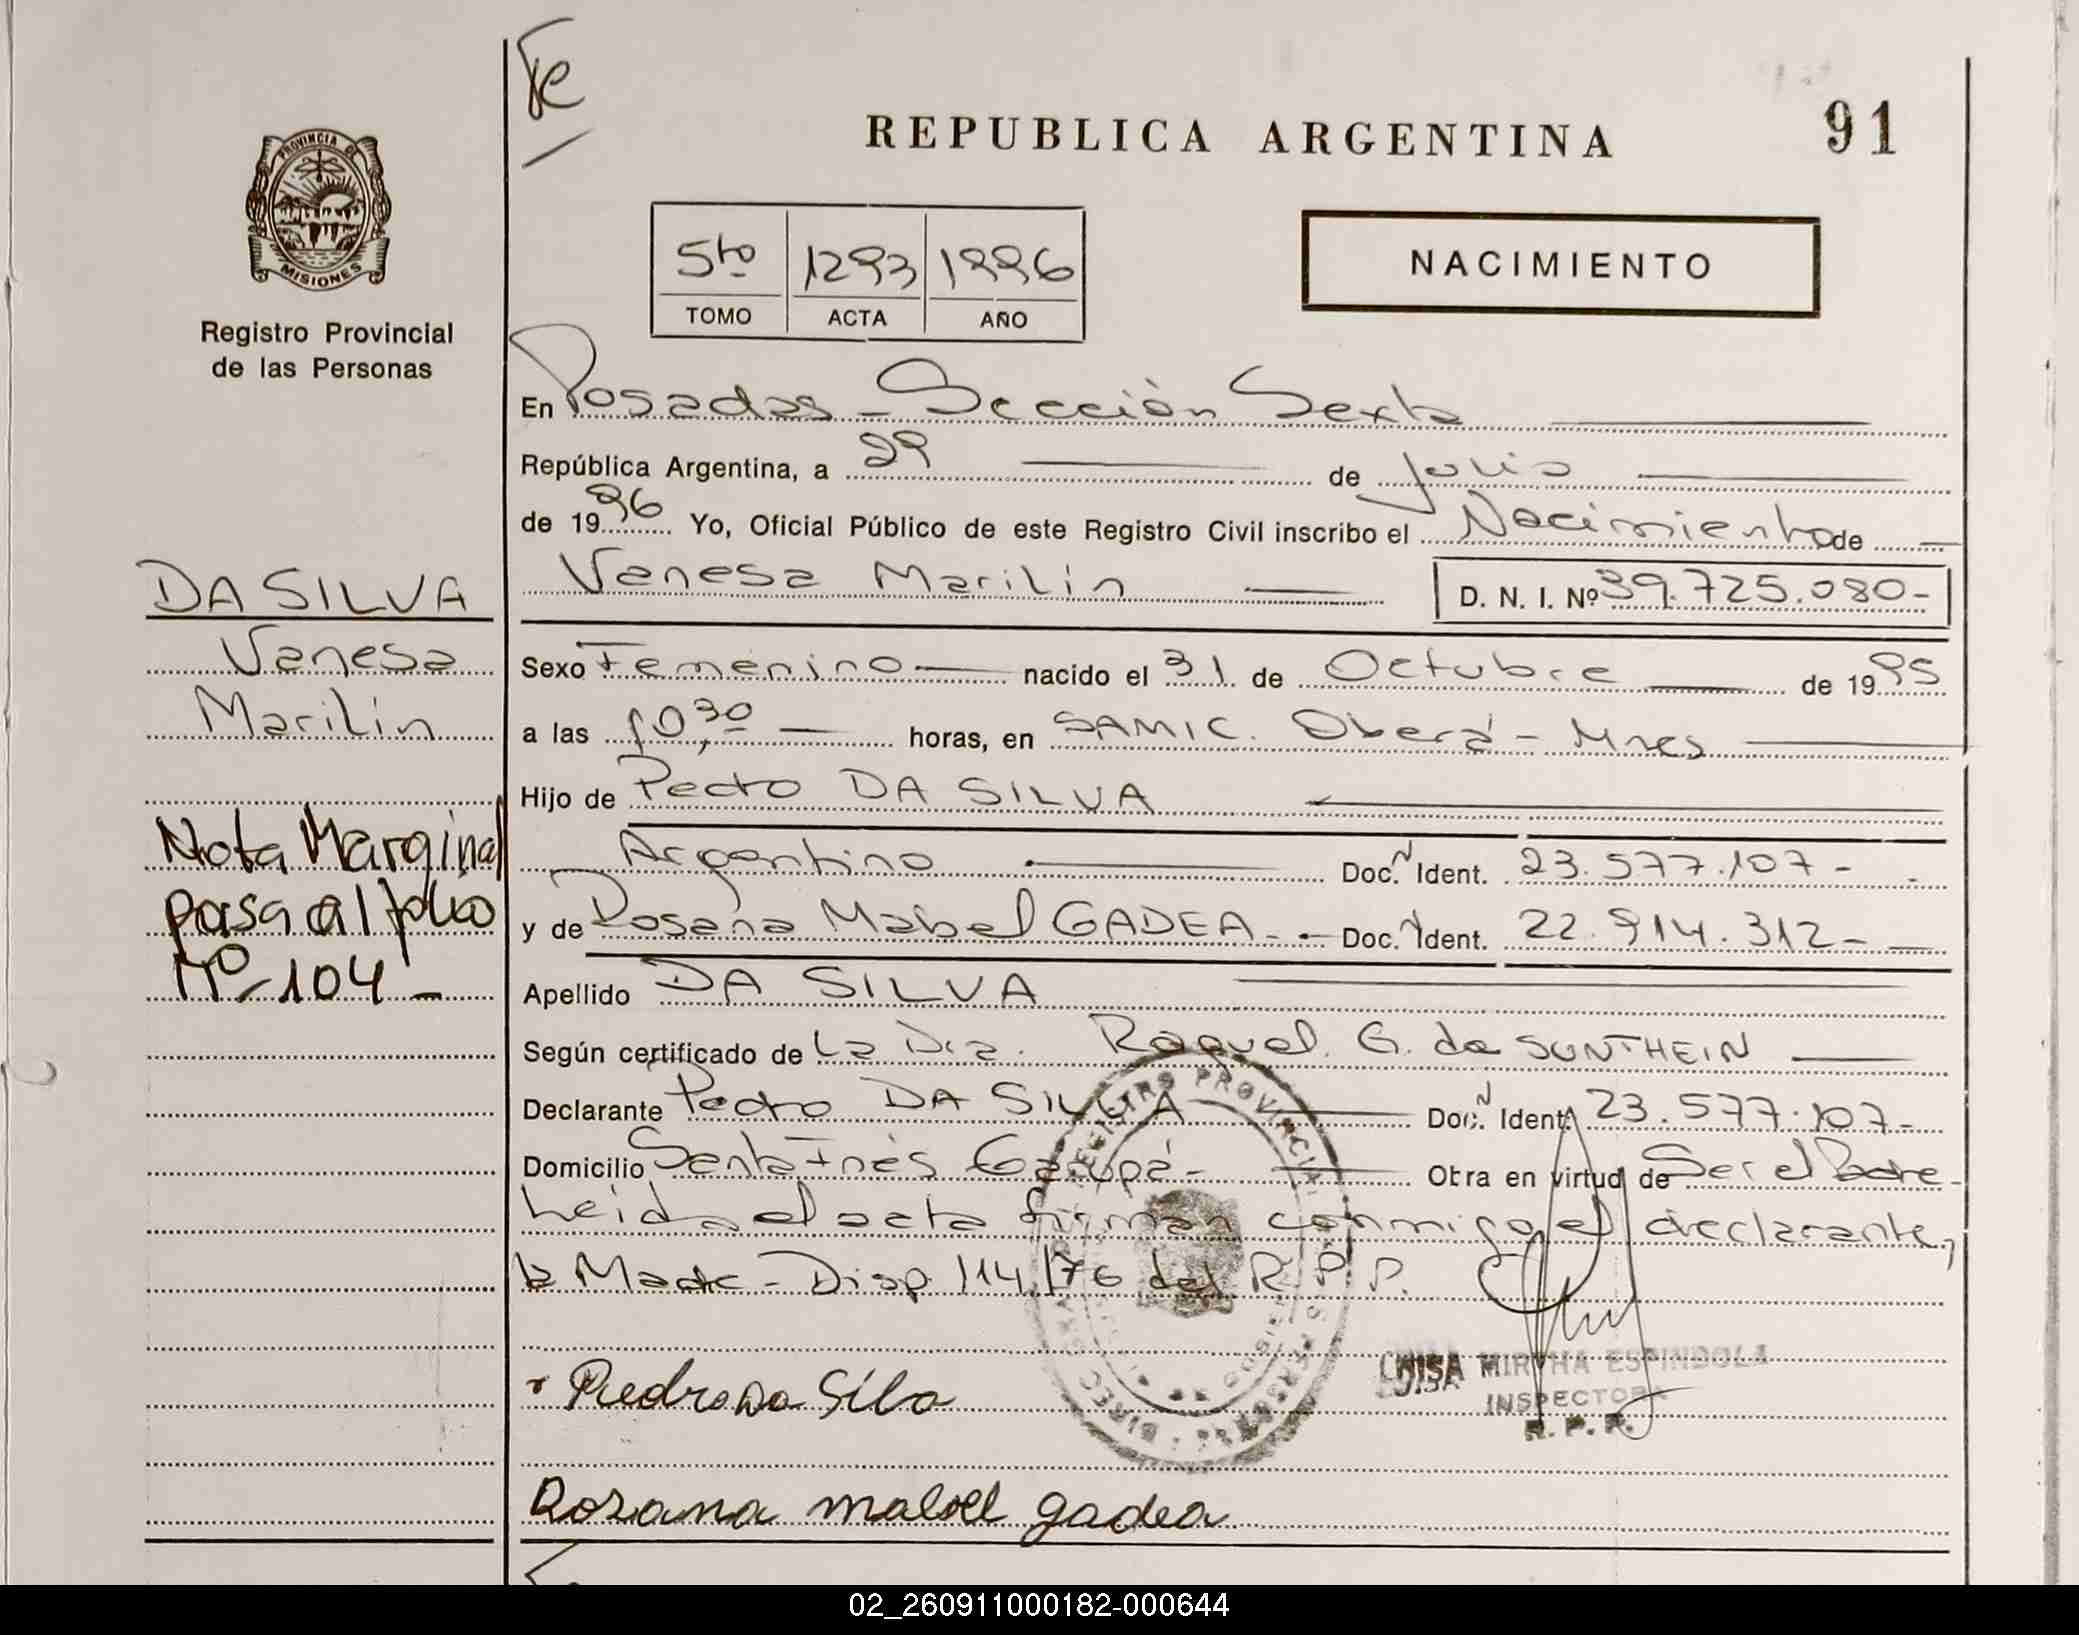 Te
REPUBLICA ARGENTINA
91
PROVINCIA DE
MISIONES
Registro Provincial
de las Personas
5to 1293 1996
TOMO ACTA AÑO
NACIMIENTO
En Posadas - Sección Sexta
República Argentina, a 29 de Julio
de 1996 Yo, Oficial Público de este Registro Civil inscribo el Nacimiento de
Vanesa Marilin D. N. I. Nº 39.725.080-
DA SILVA
Vanesa
Marilin
Sexo Femenino nacido el 31 de Octubre de 1995
a las 10,30 horas, en SAMIC. Oberá - Mnes
Hijo de Pedro DA SILVA
Argentino Doc. N Ident. 23.577.107-
y de Rosana Mabel GADEA - Doc. N Ident. 22.914.312-
Nota Marginal
pasa al folio
Nº 104 -
Apellido DA SILVA
Según certificado de La Dra. Raquel G. de SONTHEIN
Declarante Pedro DA SILVA Doc. N Ident. 23.577.107-
Domicilio Santa Inés Garupá - Otra en virtud de Ser el Padre -
Leida el acta firman conmigo el declarante,
la Madre - Disp. 114/76 del R. P. P.
REGISTRO PROVINCIAL
LUISA MIRTHA ESPINDOLA
INSPECTORA
R. P. P.
Piedro Da Silva
Rozana mabel gadea
02_260911000182-000644